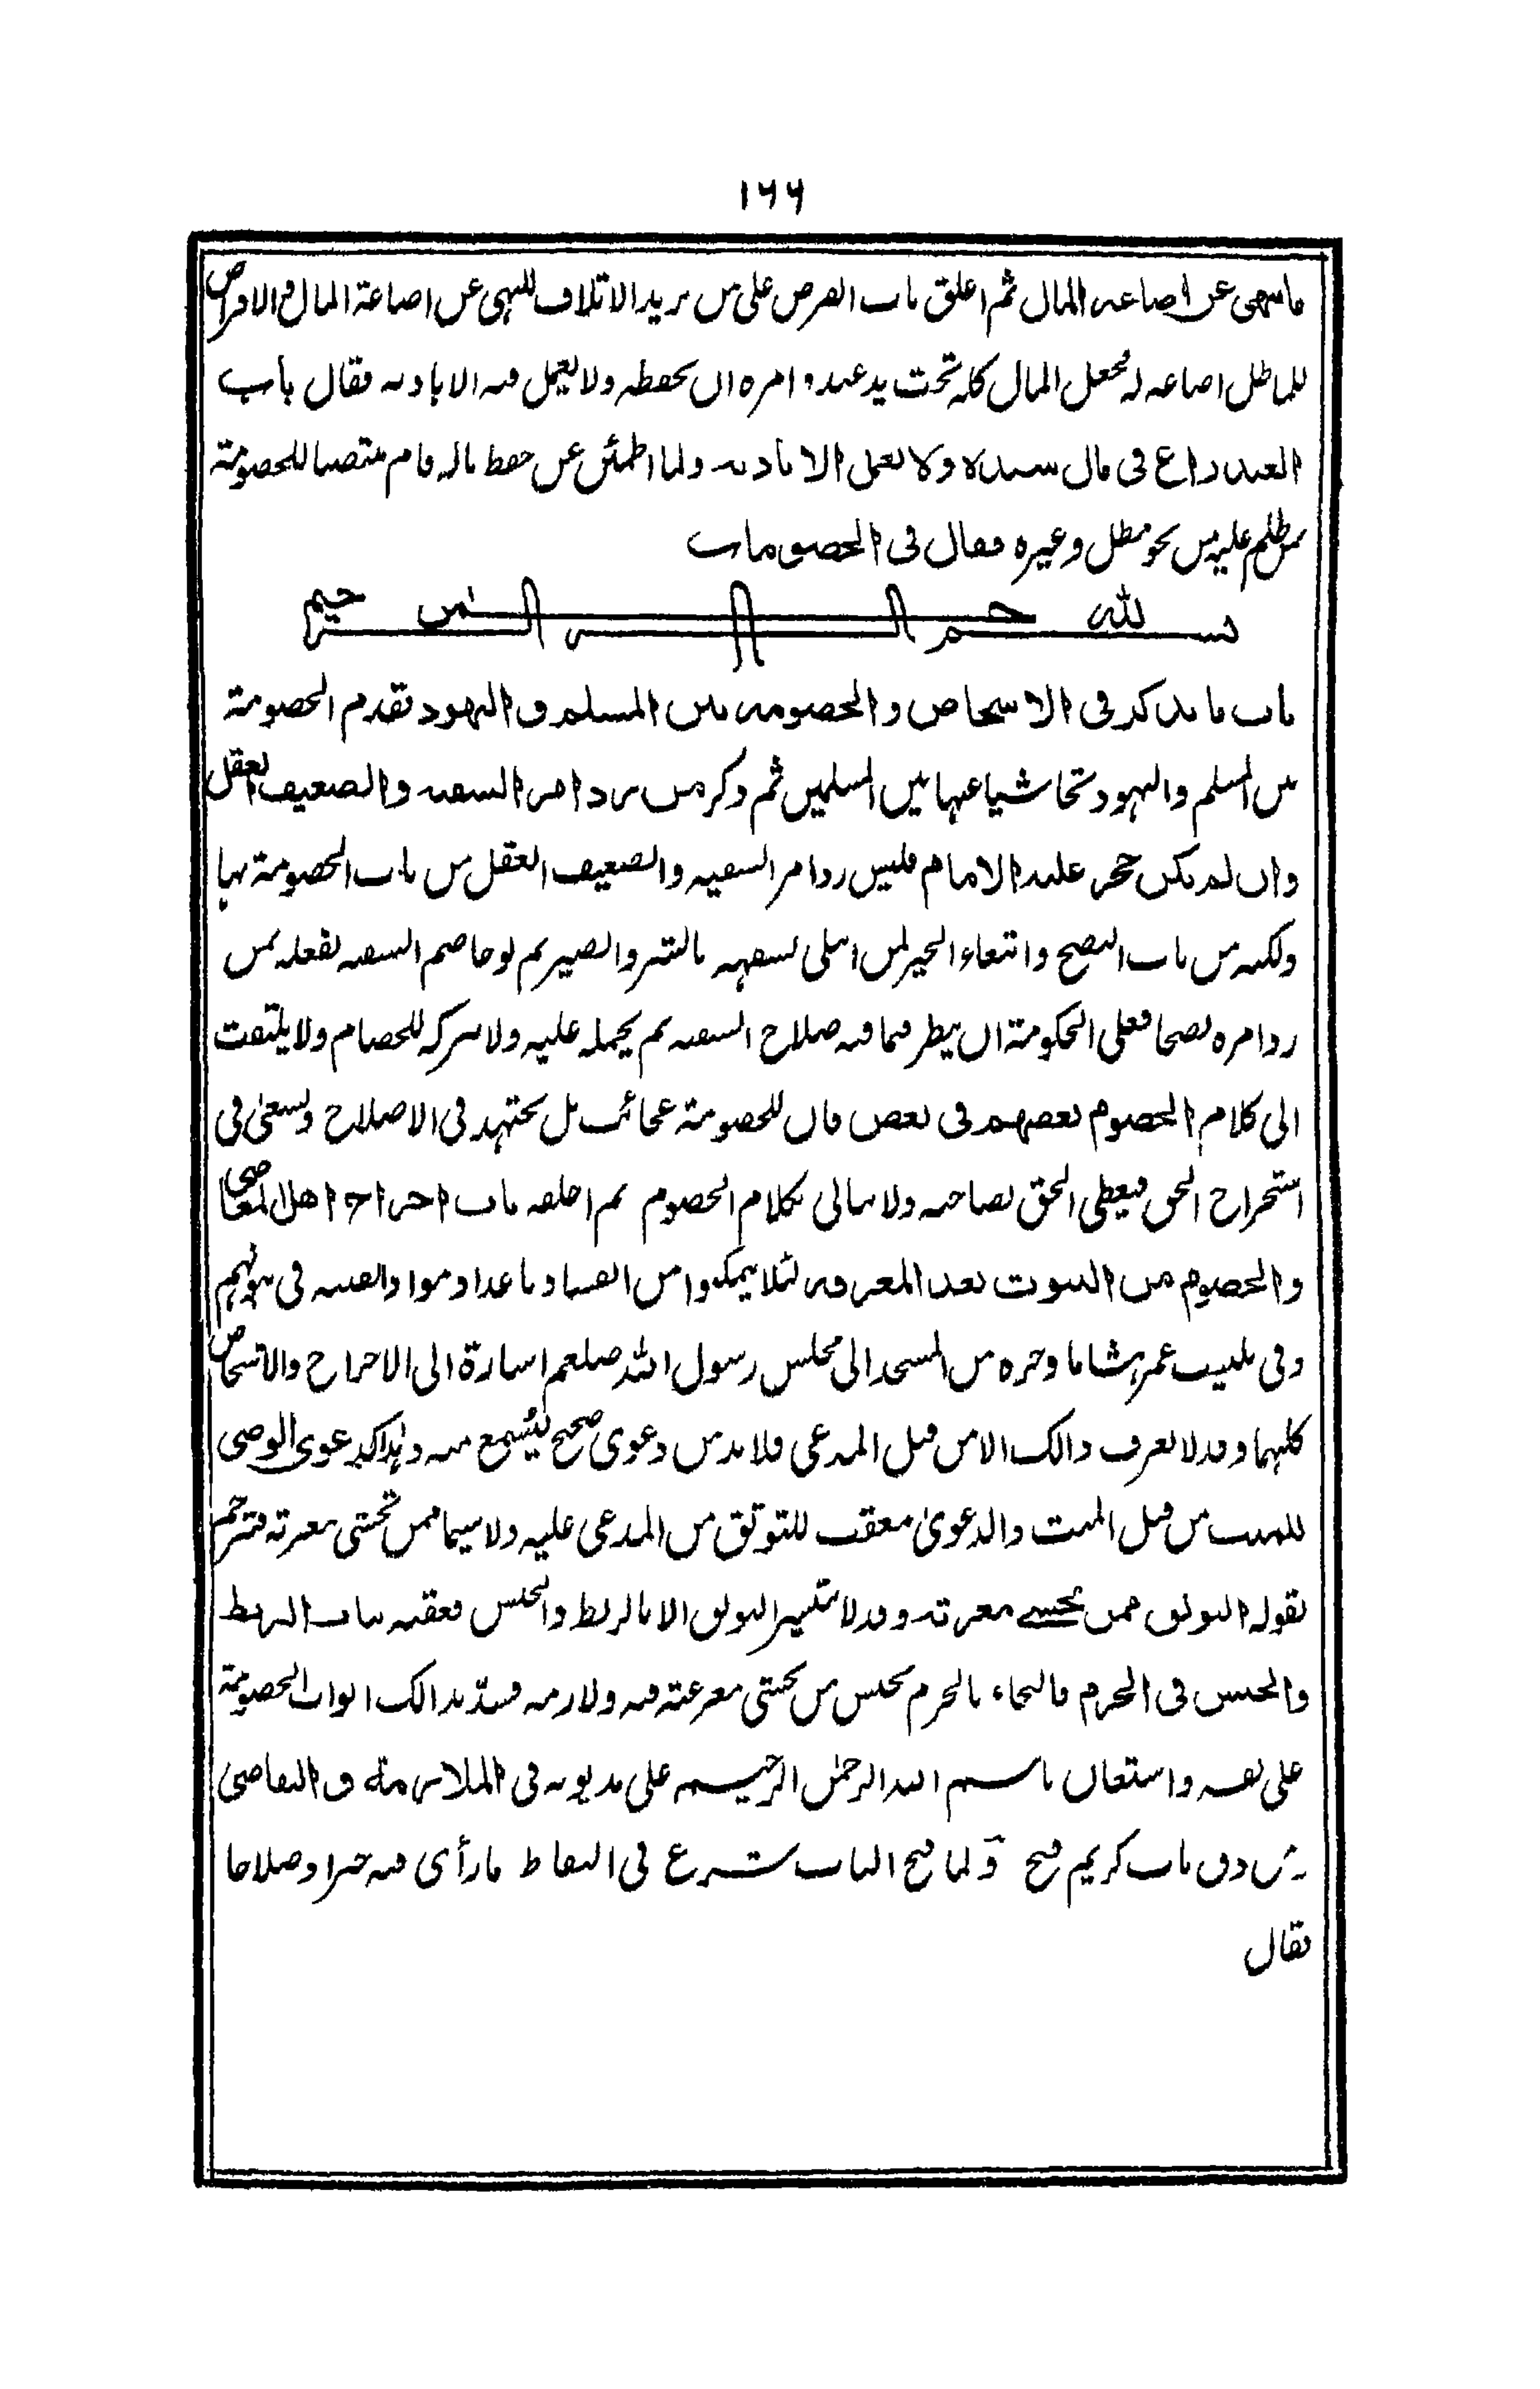 ١٦٦
ما ينهى عن اضاعة المال ثم اغلق باب القرض على من يريد الاتلاف للنهى عن اضاعة المال والاقراض
للماطل اضاعة له فجعل المال كله تحت يد عبده وامره ان يحفظه ولا يعمل فيه الا باذنه فقال باب
العبد راع فى مال سيده ولا يعمل الا باذنه ولما اطمئن عن حفظ ماله قام منتصبا للخصومة
ممن ظلم عليه من نحو مطل وغيره فقال فى الخصومات
بسم الله الرحمن الرحيم
باب ما يذكر فى الاشخاص والخصومة بين المسلم و اليهود تقدم الخصومة
بين المسلم واليهود تحاشيا عنها بين المسلمين ثم ذكر من رد امر السفيه والضعيف العقل
وان لم يكن حجر عليه الامام فليس رد امر السفيه والضعيف العقل من باب الخصومة بها
ولكنه من باب النصح وابتغاء الخير لمن ابتلى بسفهه ثم لو خاصم السفيه لفعله بمن
رد امره نصحا فعلى الحكومة ان ينظر فيما فيه صلاح السفيه ثم يحمله عليه ولا يتركه للخصام ولا يلتفت
الى كلام الخصوم بعضهم فى بعض فان للخصومة عجائب بل يجتهد فى الاصلاح ويسعى فى
استخراج الحق فيعطى الحق لصاحبه ولا يبالى بكلام الخصوم ثم اخلفه باب اخراج اهل المعاصى
والخصوم من البيوت بعد المعرفة لئلا يتمكنوا من الفساد باعداد مواد الفتنة فى بيوتهم
وفى تلبيب عمر هشاما وجره من المسجد الى مجلس رسول الله صلعم اشارة الى الاخراج والاشخاص
كليهما وقد لا يعرف ذالك الا من قبل المدعى فلا بد من دعوى صحيح ليُسمع منه وهذا كدعوى الوصى
للميت من قبل الميت والدعوىٰ معقب للتوثق من المدعى عليه ولا سيما ممن تخشى معرته فترجم
بقوله التوثق ممن يخشى معرته وقد لا يتيسر التوثق الا بالربط والحبس فعقبه بباب الربط
والحبس فى الحرم فالتجاء بالحرم بحبس من يخشى معرته فيه ولازمه فسدّ بذالك ابواب الخصومة
على نفسه واستعان باسم الله الرحمٰن الرحيم على مديونه فى الملازمة و التقاضى
ومن دق باب كريم فتح ولما فتح الباب شرع فى التقاط ما رأى فيه خيرا وصلاحا
فقال